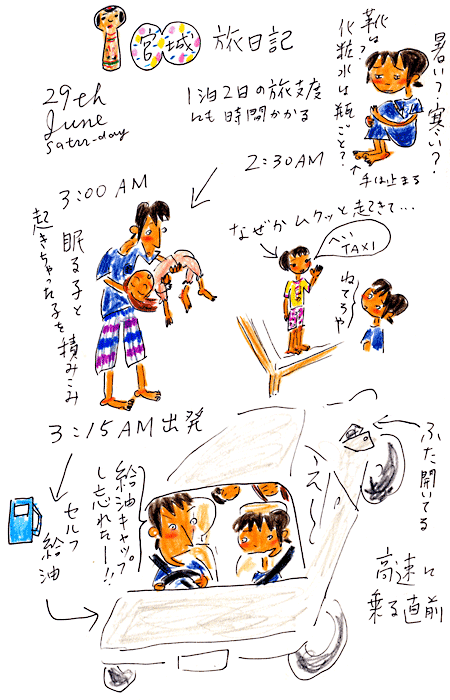 宮城 旅日記
29th
June
Satur-day
1泊2日の旅支度
にも時間かかる
暑い？寒い？
靴は？
化粧水は瓶ごと？
手は止まる
2:30AM
3:00AM
眠る子と
起きちゃった子を積みこみ
なぜかムクッと起きてきて…
ヘいTAXI
ねてろや
3:15AM出発
セルフ
給油
給油キャップ
し忘れたー!!
えー
ふた開いてる
高速に
乗る直前